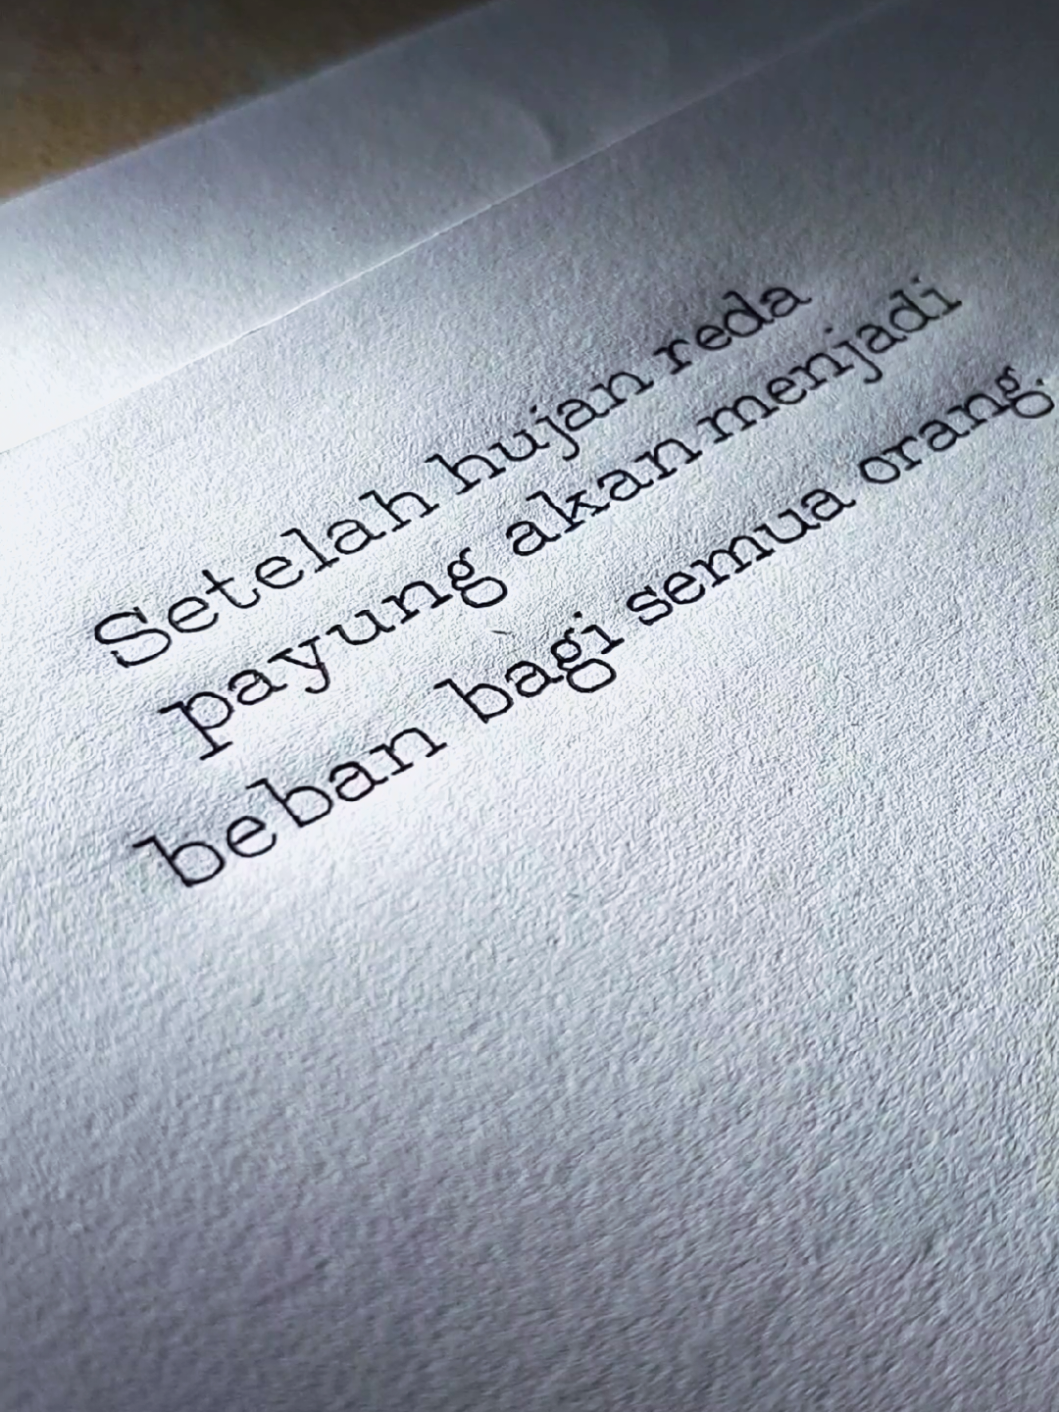 Setelah hujan reda
payung akan menjadi
beban bagi semua orang.